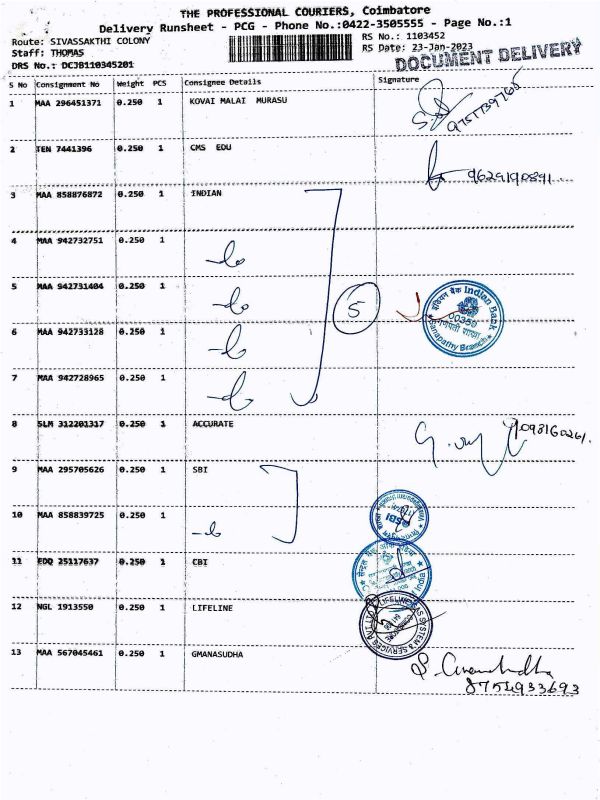 THE PROFESSIONAL COURIERS, Coimbatore
Delivery Runsheet - PCG - Phone No.:0422-3505555 - Page No.:1
Route: SIVASSAKTHI COLONY
Staff: THOMAS
DRS No.: DCJB110345201
RS No.: 1103452
RS Date: 23-Jan-2023
DOCUMENT DELIVERY
S No Consignment No Weight PCS Consignee Details Signature
1 MAA 296451371 0.250 1 KOVAI MALAI MURASU
9751739765
2 TEN 7441396 0.250 1 CMS EDU
9629190891
3 MAA 858876872 0.250 1 INDIAN
4 MAA 942732751 0.250 1
5 MAA 942731404 0.250 1
5
इंडियन बैंक Indian Bank
00350
गणपती शाखा
Ganapathy Branch
6 MAA 942733128 0.250 1
7 MAA 942728965 0.250 1
8 SLM 312201317 0.250 1 ACCURATE
9 MAA 295705626 0.250 1 SBI
10 MAA 858839725 0.250 1
SBI
11 EDQ 25117637 0.250 1 CBI
12 NGL 1913550 0.250 1 LIFELINE
13 MAA 567045461 0.250 1 GMANASUDHA
8754933693